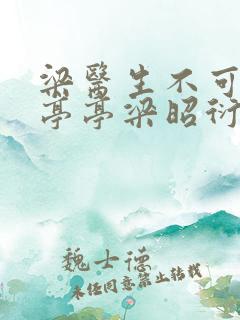 梁醫生不可
亭亭梁昭衍
魏士德
未经同意禁止转载